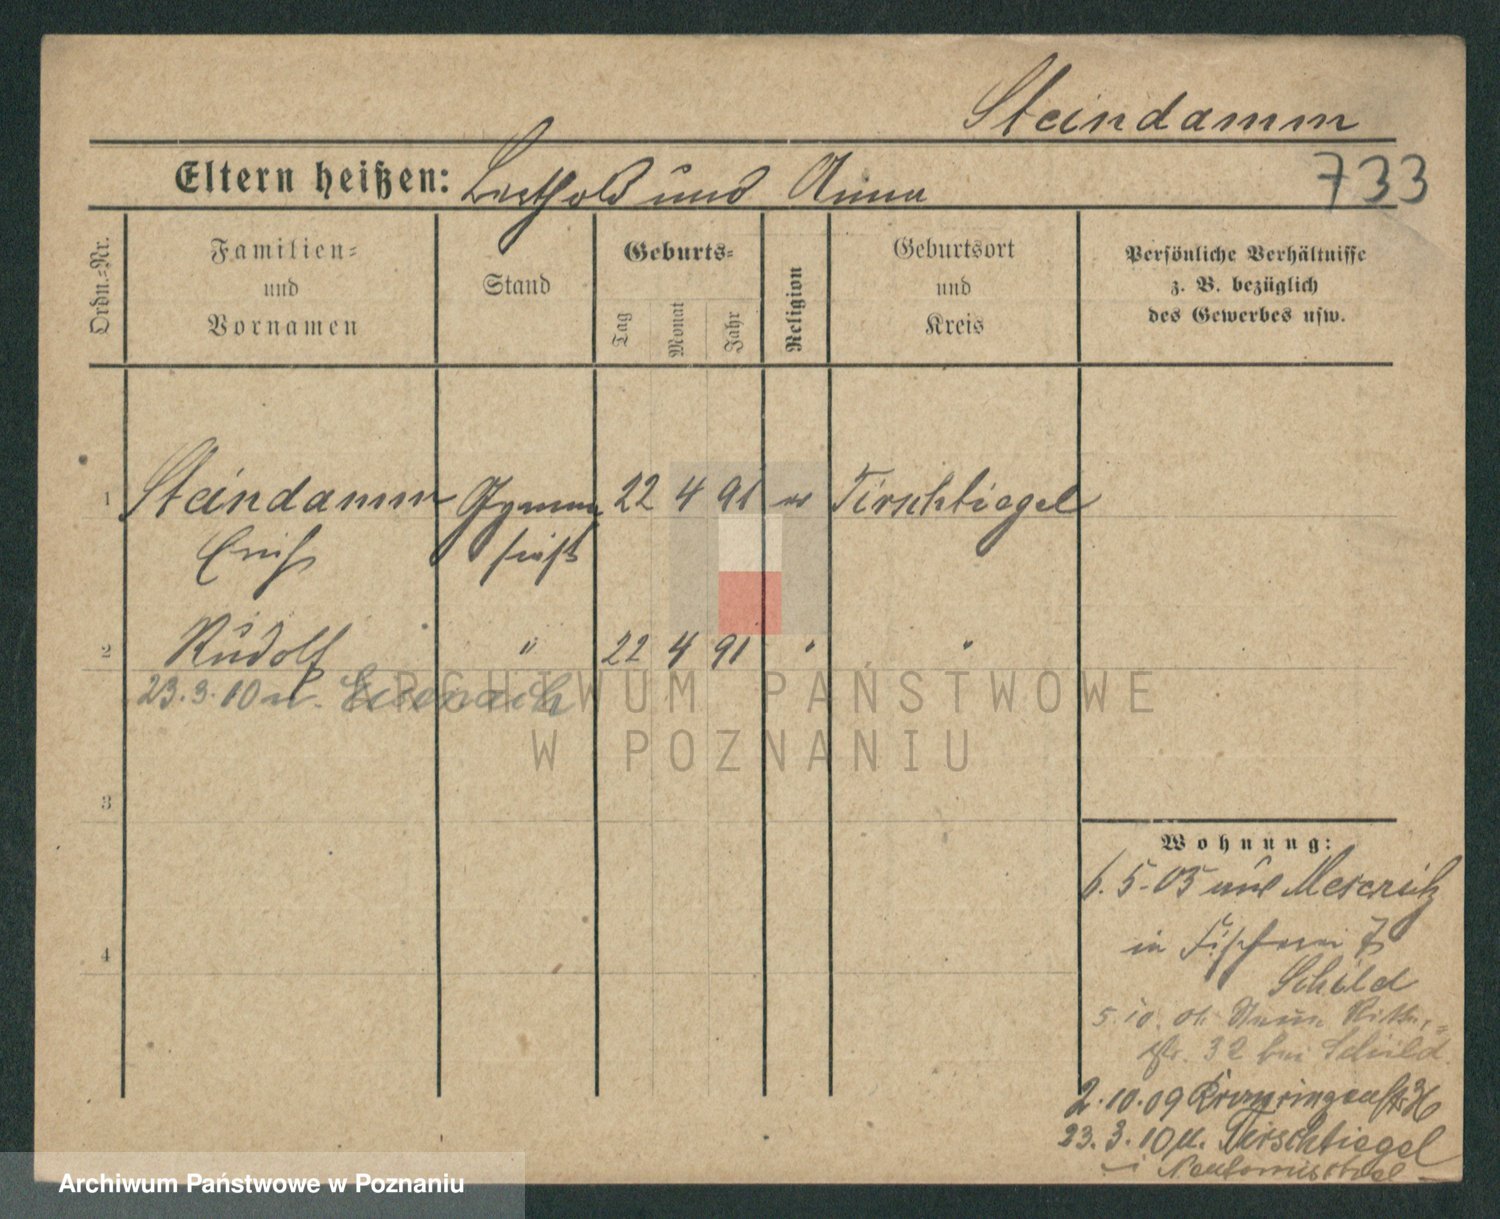 Steindamm
Eltern heißen: Berthold und Anna
733
Ordn.=Nr.
Familien=
und
Vornamen
Stand
Geburts=
Tag
Monat
Jahr
Religion
Geburtsort
und
Kreis
Persönliche Verhältnisse
z. B. bezüglich
des Gewerbes usw.
1 Steindamm Gymna 22 4 91 Tirschtiegel
Erich siast
2 Rudolf " 22 4 91 " "
23.3.10 n. Eisenach
3
4
Wohnung:
6.5.05 aus Meseritz
in Fischerei 7
Schild
5.10. Neue
str. 32 bei Schild
2.10.09 Kronprinzenstr.
23.3.10 n. Tirschtiegel
Neutomischel
ARCHIWUM PAŃSTWOWE
W POZNANIU
Archiwum Państwowe w Poznaniu